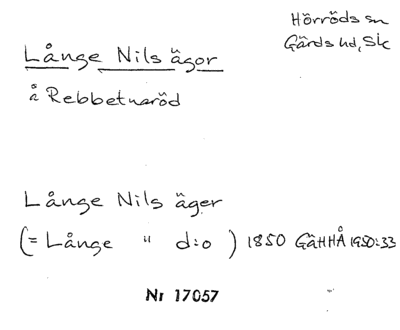 Hörröds sn
Gärds hd, Sk
Långe Nils ägor
å Rebbetuaröd
Långe Nils äger
(= Långe " d:o ) 1850 GäHHÅ 1950:33
Nr 17057